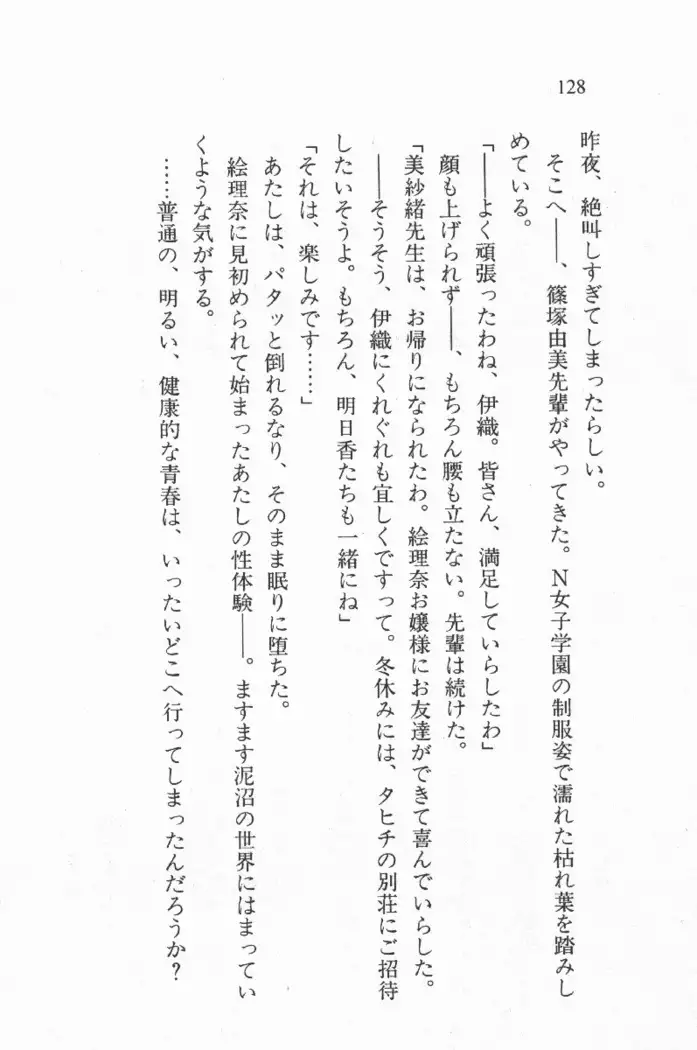 128
昨夜、絶叫しすぎてしまったらしい。
そこへ――、篠塚由美先輩がやってきた。N女子学園の制服姿で濡れた枯れ葉を踏みし
めている。
「――よく頑張ったわね、伊織。皆さん、満足していらしたわ」
顔も上げられず――、もちろん腰も立たない。先輩は続けた。
「美紗緒先生は、お帰りになられたわ。絵理奈お嬢様にお友達ができて喜んでいらした。
――そうそう、伊織にくれぐれも宜しくですって。冬休みには、タヒチの別荘にご招待
したいそうよ。もちろん、明日香たちも一緒にね」
「それは、楽しみです……」
あたしは、パタッと倒れるなり、そのまま眠りに堕ちた。
絵理奈に見初められて始まったあたしの性体験――。ますます泥沼の世界にはまってい
くような気がする。
……普通の、明るい、健康的な青春は、いったいどこへ行ってしまったんだろうか?